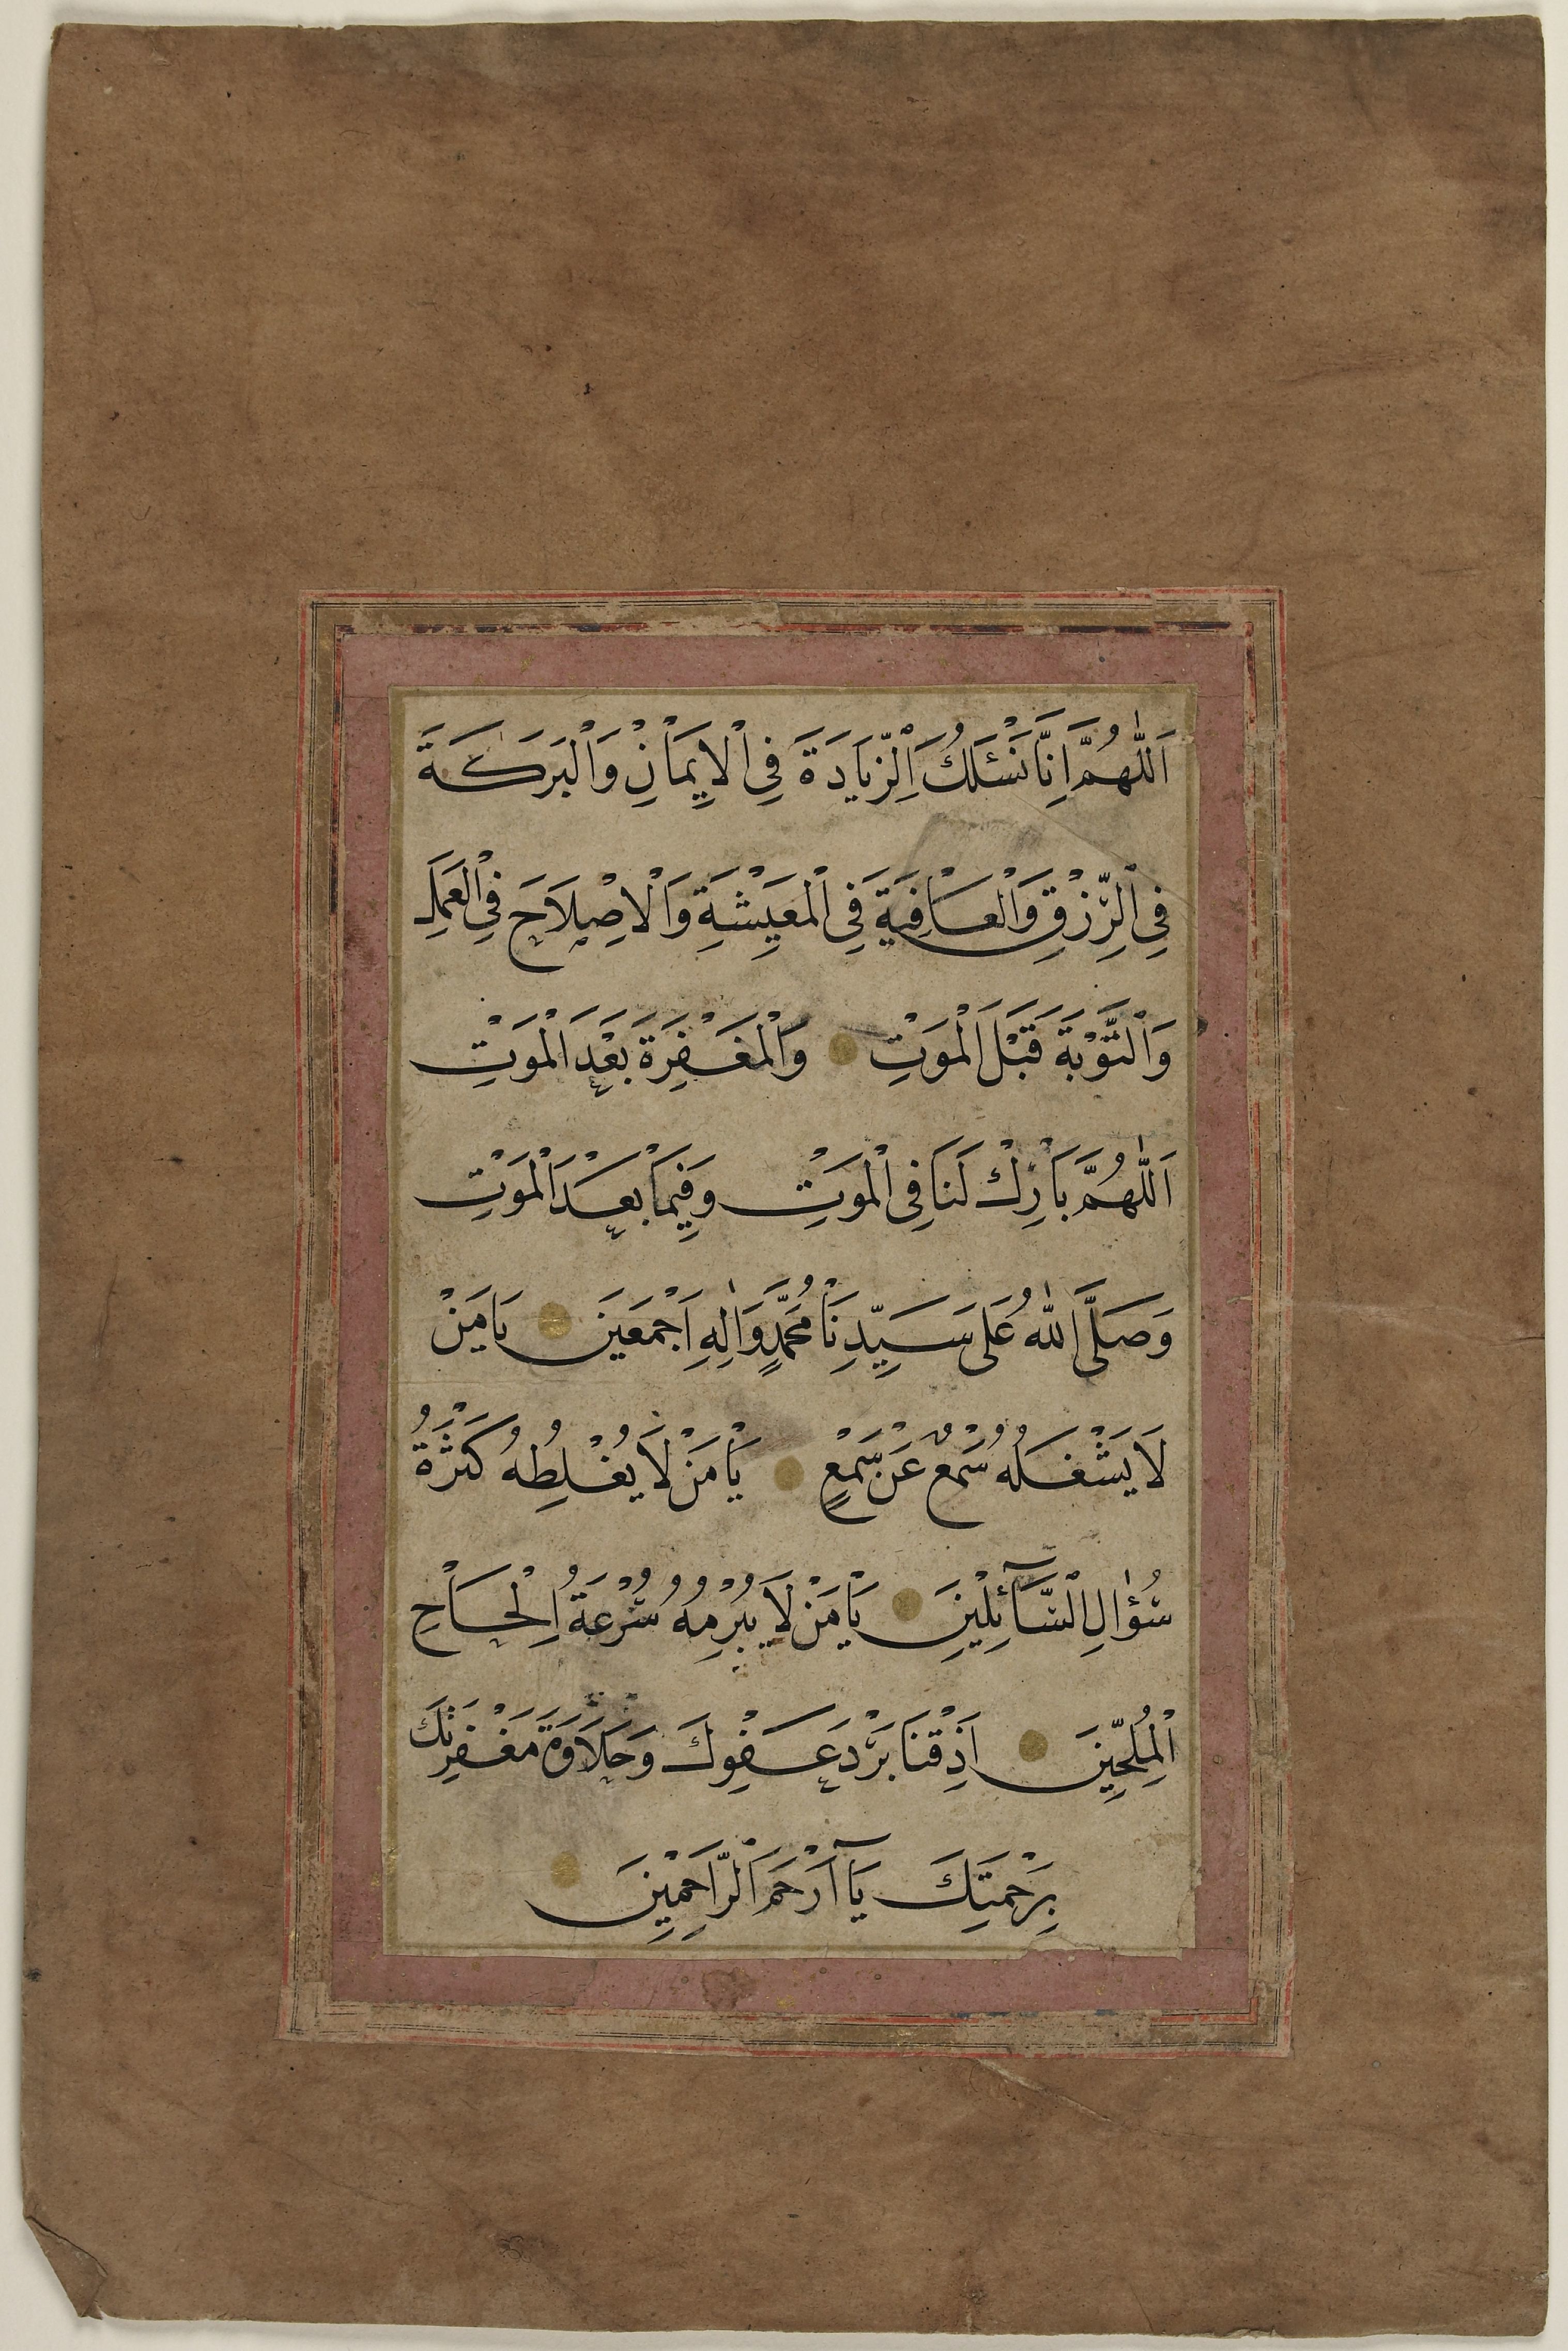 اَللّٰهُمَّ اِنَّا نَسْئَلُكَ الزِّيَادَةَ فِي الْاِيمَانِ وَالْبَرَكَةَ
فِي الرِّزْقِ وَالْعَافِيَةَ فِي الْمَعِيْشَةِ وَالْاِصْلَاحَ فِي الْعَمَلِ
وَالتَّوْبَةَ قَبْلَ الْمَوْتِ وَالْمَغْفِرَةَ بَعْدَ الْمَوْتِ
اَللّٰهُمَّ بَارِكْ لَنَا فِي الْمَوْتِ وَفِيمَا بَعْدَ الْمَوْتِ
وَصَلَّى اللّٰهُ عَلَى سَيِّدِنَا مُحَمَّدٍ وَاٰلِهِ اَجْمَعِينَ يَا مَنْ
لَا يَشْغَلُهُ سَمْعٌ عَنْ سَمْعٍ يَا مَنْ لَا يُغْلِطُهُ كَثْرَةُ
سُؤٰالِ السَّآئِلِينَ يَا مَنْ لَا يُبْرِمُهُ سُرْعَةُ اِلْحَاحِ
الْمُلِحِّينَ اَذِقْنَا بَرْدَ عَفْوِكَ وَحَلَاوَةَ مَغْفِرَتِكَ
بِرَحْمَتِكَ يَآ اَرْحَمَ الرَّاحِمِينَ